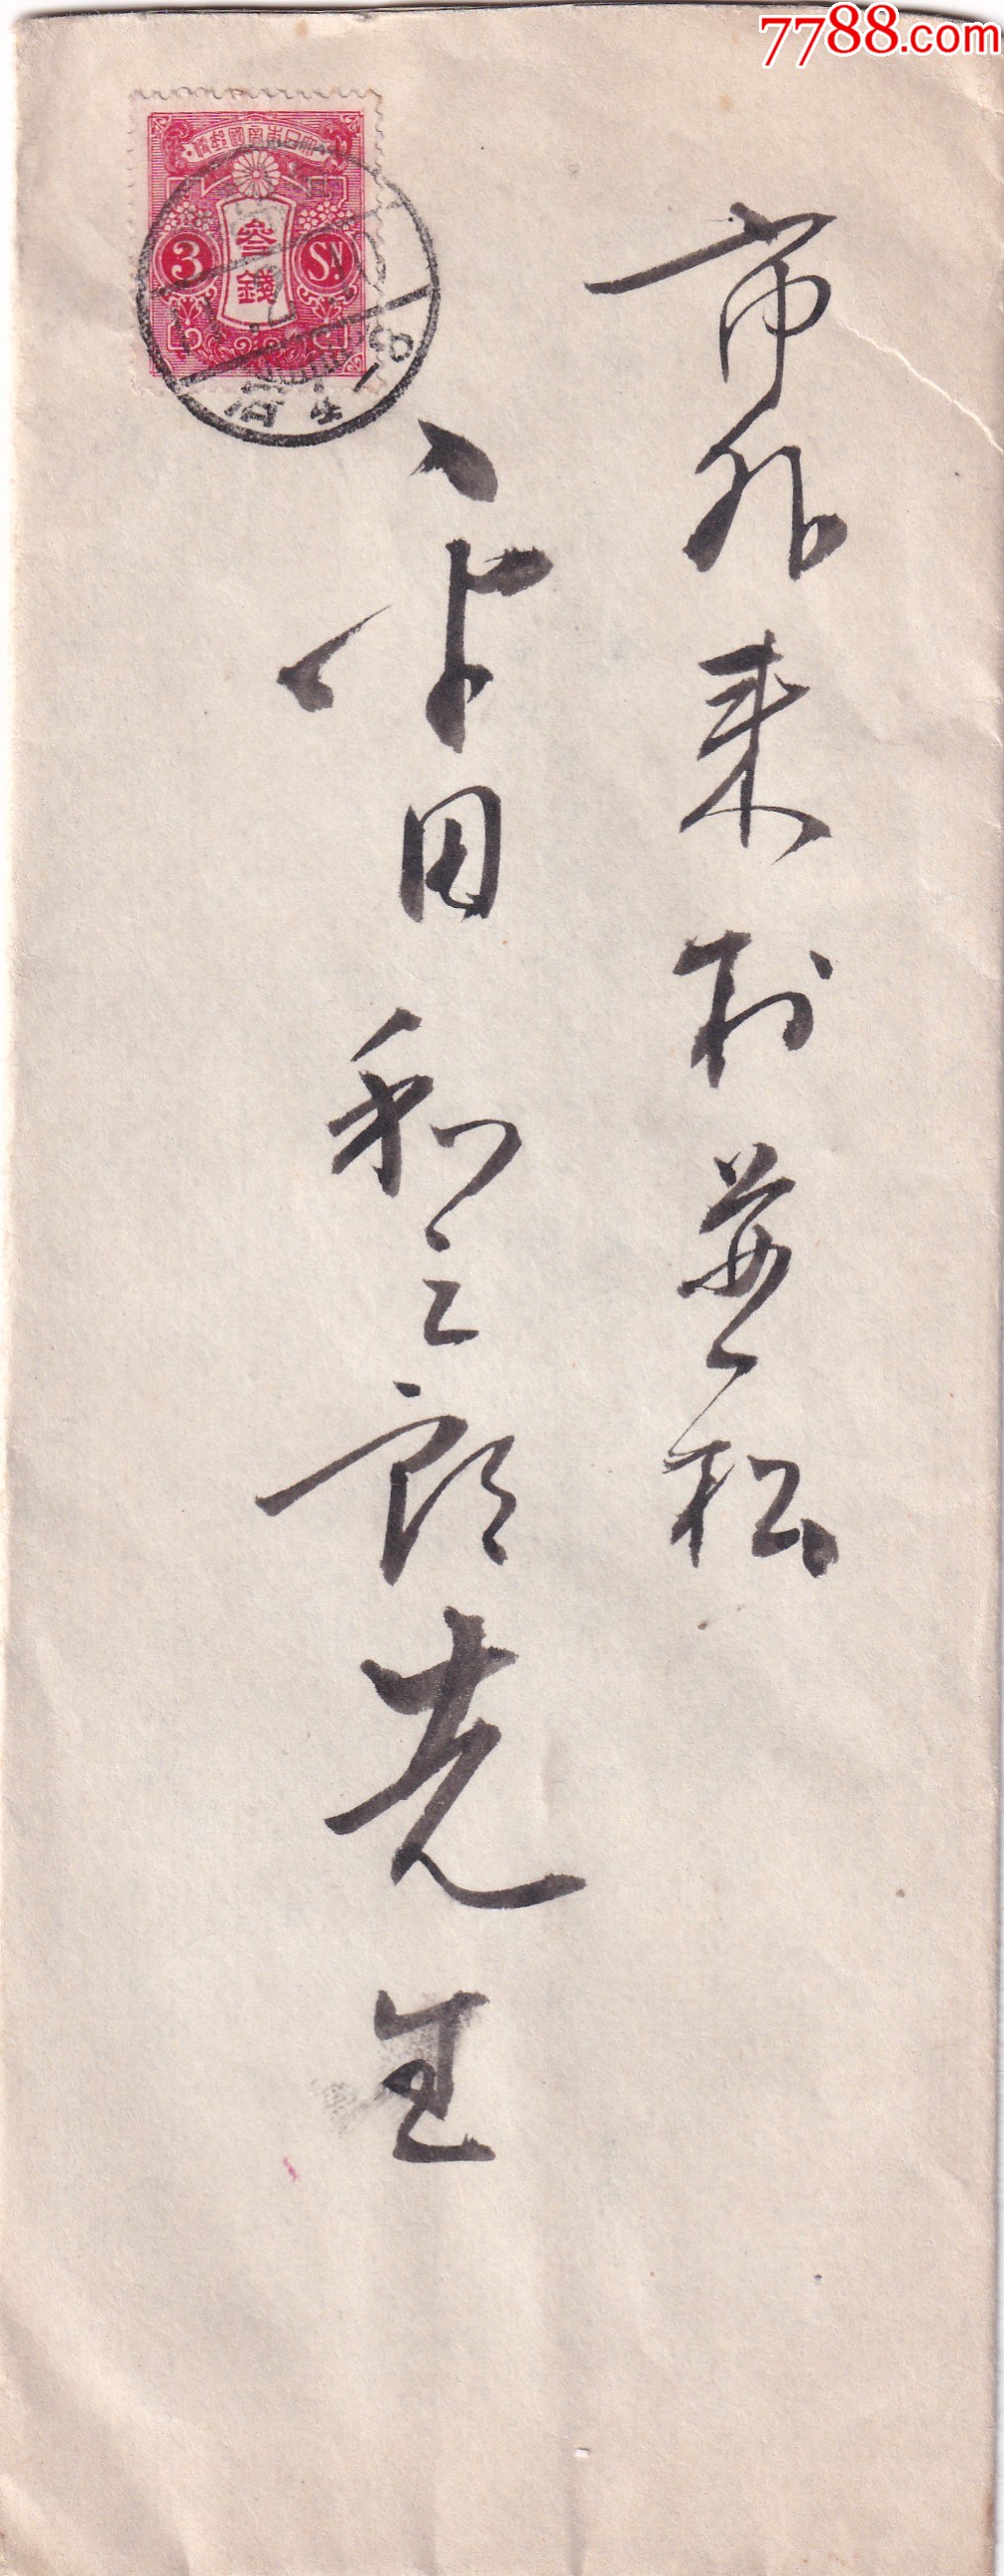 7788.com
大日本帝國郵便
3 參錢 Sn.
市外来村 松
田和三郎先生